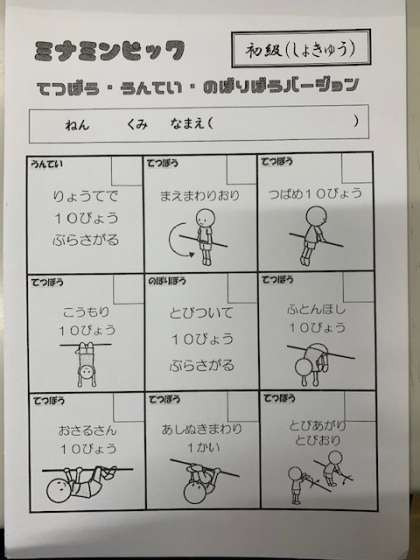 ミナミンピック
初級(しょきゅう)
てつぼう・うんてい・のぼりぼうバージョン
ねん くみ なまえ( )
うんてい
りょうてで
10びょう
ぶらさがる
てつぼう
まえまわりおり
てつぼう
つばめ10びょう
てつぼう
こうもり
10びょう
のぼりぼう
とびついて
10びょう
ぶらさがる
てつぼう
ふとんほし
10びょう
てつぼう
おさるさん
10びょう
てつぼう
あしぬきまわり
1かい
てつぼう
とびあがり
とびおり